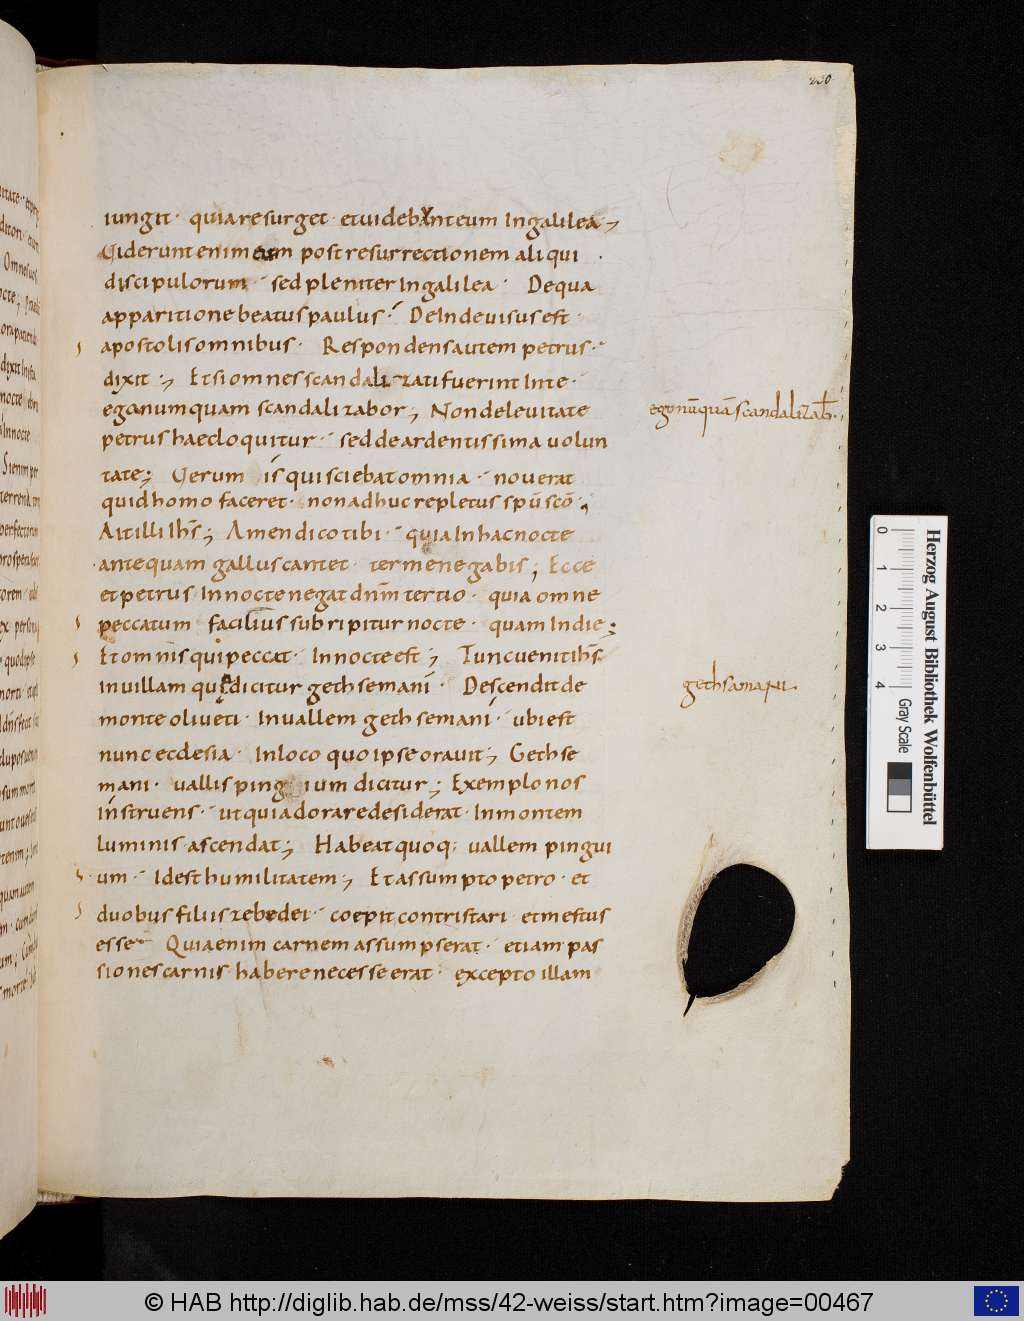 230
iungit · quia resurget · et uidebunt eum In galilea ;
Uiderunt enim eum post resurrectionem aliqui ·
discipulorum · sed pleniter In galilea · De qua
apparitione beatus paulus · DeInde uisus est ·
apostolis omnibus · Respondens autem petrus ·
dixit ; Et si omnes scandalizati fuerint Inte ·
ego numquam scandalizabor ; Non de leuitate
ego nūquā scandalizab̄ ·
petrus haec loquitur · sed de ardentissima uolun
tate ; Uerum is qui sciebat omnia · nouerat
quid homo faceret · non adhuc repletus spū scō ·
Ait illi Ihs̄ ; Amen dico tibi · quia In hac nocte
antequam gallus cantet · ter me negabis ; Ecce
et petrus In nocte negat dn̄m tertio · quia omne
peccatum facilius subripitur nocte · quam In die ;
Et omnis qui peccat · In nocte est ; Tunc uenit ihs̄
in uillam quę dicitur gethsemani · Descendit de
gethsamani ·
monte oliueti · In uallem gethsemani · ubi est
nunc ecclesia · In loco quo ipse orauit ; Gethse
mani · uallis pinguium dicitur ; Exemplo nos
instruens · ut qui adorare desiderat · In montem
luminis ascendat ; Habeat quoq: uallem pingui
um · Id est humilitatem ; Et assumpto petro · et
duobus filiis zebedei · coepit contristari · et mestus
esse · Quia enim carnem assumpserat · etiam pas
siones carnis habere necesse erat · excepto illam
0 1 2 3 4
Gray Scale
Herzog August Bibliothek Wolfenbüttel
© HAB http://diglib.hab.de/mss/42-weiss/start.htm?image=00467